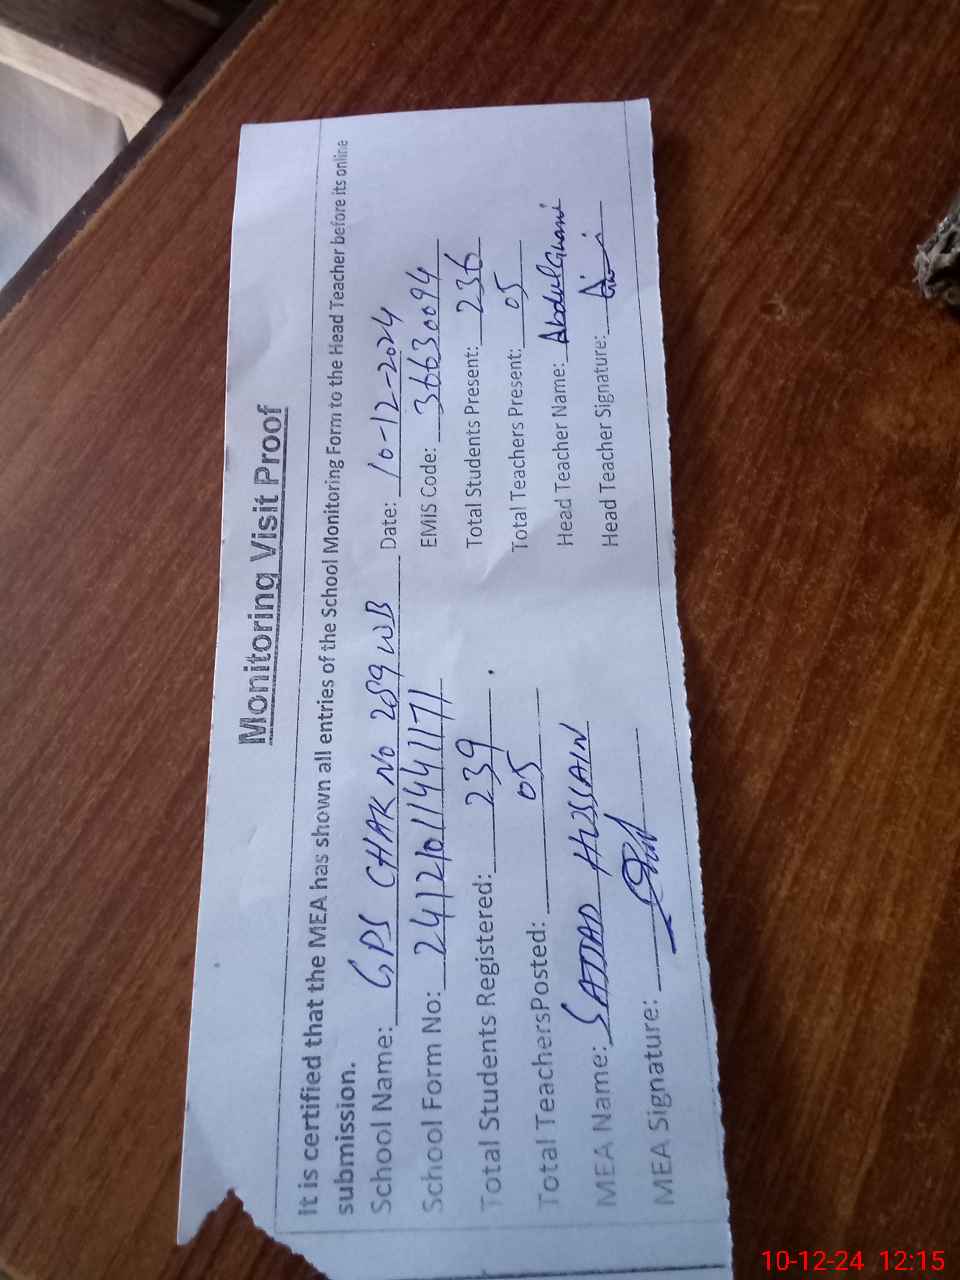 Monitoring Visit Proof
It is certified that the MEA has shown all entries of the School Monitoring Form to the Head Teacher before its online
submission.
School Name: GPS CHAK No 289 WB Date: 10-12-2024
School Form No: 24121011441171 EMIS Code: 36630094
Total Students Registered: 239 Total Students Present: 236
Total TeachersPosted: 05 Total Teachers Present: 05
MEA Name: SAJJAD HUSSAIN Head Teacher Name: Abdul Ghani
MEA Signature: Head Teacher Signature:
10-12-24 12:15